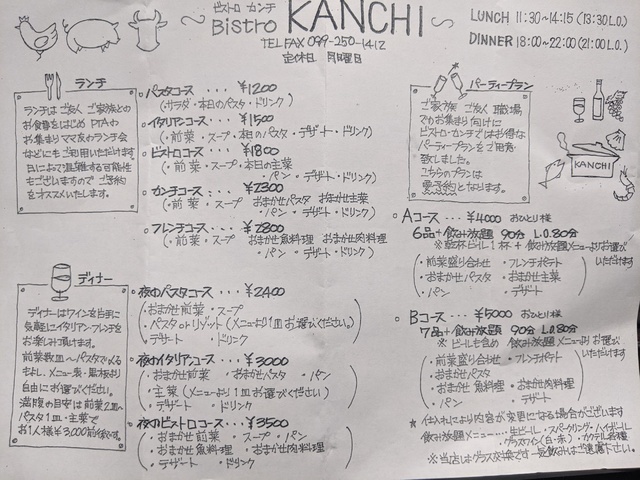 ビストロ カンチ
Bistro KANCHI
TEL FAX 099-250-1412
定休日 月曜日
LUNCH 11:30~14:15 (13:30 L.O.)
DINNER 18:00~22:00 (21:00 L.O.)
ランチ
ランチは ご友人 ご家族との
お食事をはじめ PTAや
お集まり ママ友ランチ会
などにもご利用いただけます
日によって混雑する可能性
もございますので ご予約
をオススメいたします。
・パスタコース・・・ ¥1200
(サラダ・本日のパスタ・ドリンク)
・イタリアンコース ¥1500
(・前菜・スープ・本日のパスタ・デザート・ドリンク)
・ビストロコース ¥1800
(・前菜・スープ・本日の主菜
・パン・デザート・ドリンク)
・カンチコース ¥2300
(・前菜・スープ おまかせパスタ おまかせ主菜
・パン・デザート・ドリンク)
・フレンチコース ¥2800
(・前菜・スープ おまかせ魚料理 おまかせ肉料理
・パン・デザート・ドリンク)
ディナー
ディナーはワインを片手に
気軽にイタリアンフレンチを
お楽しみ頂けます。
前菜数皿へパスタで〆る
もよし、メニュー表・黒板より
自由にお選びください。
満腹の目安は前菜2皿~
パスタ1皿・主菜で
お1人様¥3,000前後です。
・夜のパスタコース・・¥2400
・おまかせ前菜・スープ
・パスタorリゾット(メニューより1皿お選びください。)
・デザート ・ドリンク
・夜のイタリアコース・・¥3000
・おまかせ前菜 ・おまかせパスタ ・パン
・主菜(メニューより1皿お選びください)
・デザート ・ドリンク
・夜のビストロコース・・¥3500
・おまかせ前菜 ・スープ・パン
・おまかせ魚料理 ・おまかせ肉料理
・デザート ・ドリンク
パーティープラン
ご家族 ご友人 職場
でのお集まり向けに
ビストロ・カンチではお得な
パーティープランをご用意
致しました。
こちらのプランは
要予約となります。
KANCHI
・Aコース・・・¥4000 おひとり様
6品+飲み放題 90分 L.O.80分
※乾杯ビール1杯+飲み放題メニューよりお選び
いただけます
・前菜盛り合わせ ・フレンチポテト
・おまかせパスタ ・おまかせ主菜
・パン ・デザート
・Bコース・・・¥5000 おひとり様
7品+飲み放題 90分 L.O.80分
※ビールも含め 飲み放題メニューよりお選び
いただけます
・前菜盛り合わせ ・フレンチポテト
・おまかせパスタ
・おまかせ魚料理 ・おまかせ肉料理
・パン ・デザート
★仕入れにより内容が変更になる場合がございます
飲み放題メニュー・・・生ビール・スパークリング・ハイボール
・グラスワイン(白・赤)・カクテル各種
※当店はグラス交換です 一気飲みはご遠慮下さい。